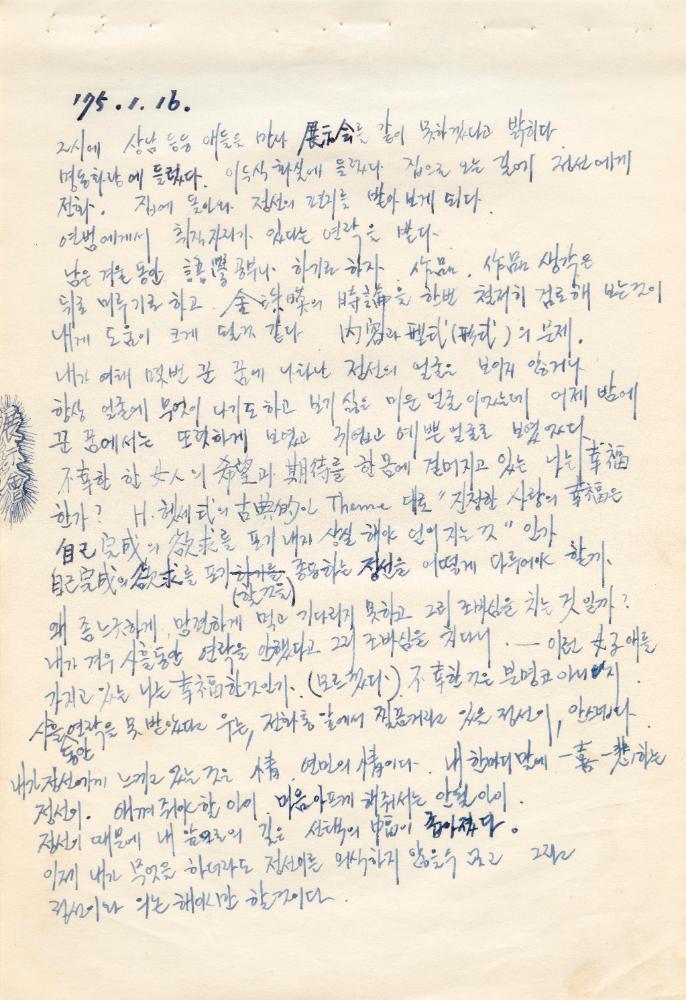 '75.1.16.
2시에 상남 등등 애들을 만나 展示会를 같이 못하겠다고 밝히다
명동화랑에 들렀다. 이득식 화실에 들렀다 집으로 오는 길에 정선에게
전화. 집에 돌아와 정선의 편지를 받아 보게 되다.
연범에게서 취직자리가 있다는 연락을 받다.
남은 겨울 동안 語學공부나 하기로 하자 作品. 作品 생각은
뒤로 미루기로 하고 金珠暎의 時論을 한번 철저히 검토해 보는것이
내게 도움이 크게 될것 같다 内容과 形式(形式)의 문제.
내가 여태 몇번 꾼 꿈에 나타난 정선의 얼굴은 보이지 않거나
항상 얼굴에 무엇이 나기도하고 보기 싫은 미운 얼굴이었는데 어제 밤에
꾼 꿈에서는 또렷하게 보였고 귀엽고 예쁜 얼굴로 보였었다
不幸한 한 女人의 希望과 期待를 한몸에 걸머지고 있는 나는 幸福
한가? H.헷세式의 古典的인 Theme 대로 "진정한 사랑의 幸福은
自己完成의 欲求를 포기 내지 상실해야 얻어지는것" 인가
自己完成의 欲求를 포기하기를 종동하는 정선을 어떻게 다루어야 할까.
(할것을)
왜 좀 느긋하게, 맘편하게 먹고 기다리지 못하고 그리 조바심을 치는 것일까?
내가 겨우 사흘동안 연락을 안했다고 그리 조바심을 치다니. — 이런 女子애를
가지고 있는 나는 幸福한것인가. (모르겠다.) 不幸한것은 분명코 아니겠지
사흘동안 연락을 못 받았다고 우는, 전화통 앞에서 찔끔거리고 있을 정선이, 안스럽다.
내가 정선에게 느끼고 있는 것은 情, 연민의 情이다. 내 한마디 말에 一喜一悲하는
정선이. 애껴줘야 할 아이 마음아프게 해줘서는 안될 아이.
정선이 때문에 내 앞으로의 길은 선택의 幅이 좁아졌다.
이제 내가 무엇을 하더라도 정선이를 의식하지 않을수 없고 그리고
정선이와 의논해야만 할것이다.
展示會